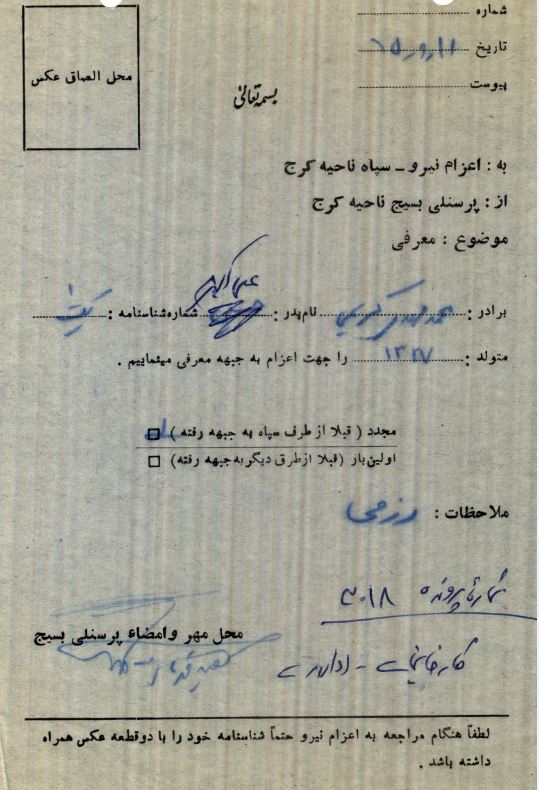 شماره
تاریخ
پیوست
محل الصاق عکس
بسمه تعالیٰ
به : اعزام نیرو - سپاه ناحیه کرج
از : پرسنلی بسیج ناحیه کرج
موضوع : معرفی
علی اکبر
برادر : نام پدر : شماره شناسنامه :
متولد : ۱۳۲۷ را جهت اعزام به جبهه معرفی مینماییم .
مجدد ( قبلا از طرف سپاه به جبهه رفته )
اولین بار ( قبلا از طرق دیگر به جبهه رفته )
ملاحظات : رزمی
شماره پرونده ۳۰۱۸
محل مهر و امضاء پرسنلی بسیج
لطفاً هنگام مراجعه به اعزام نیرو حتماً شناسنامه خود را با دو قطعه عکس همراه
داشته باشد .